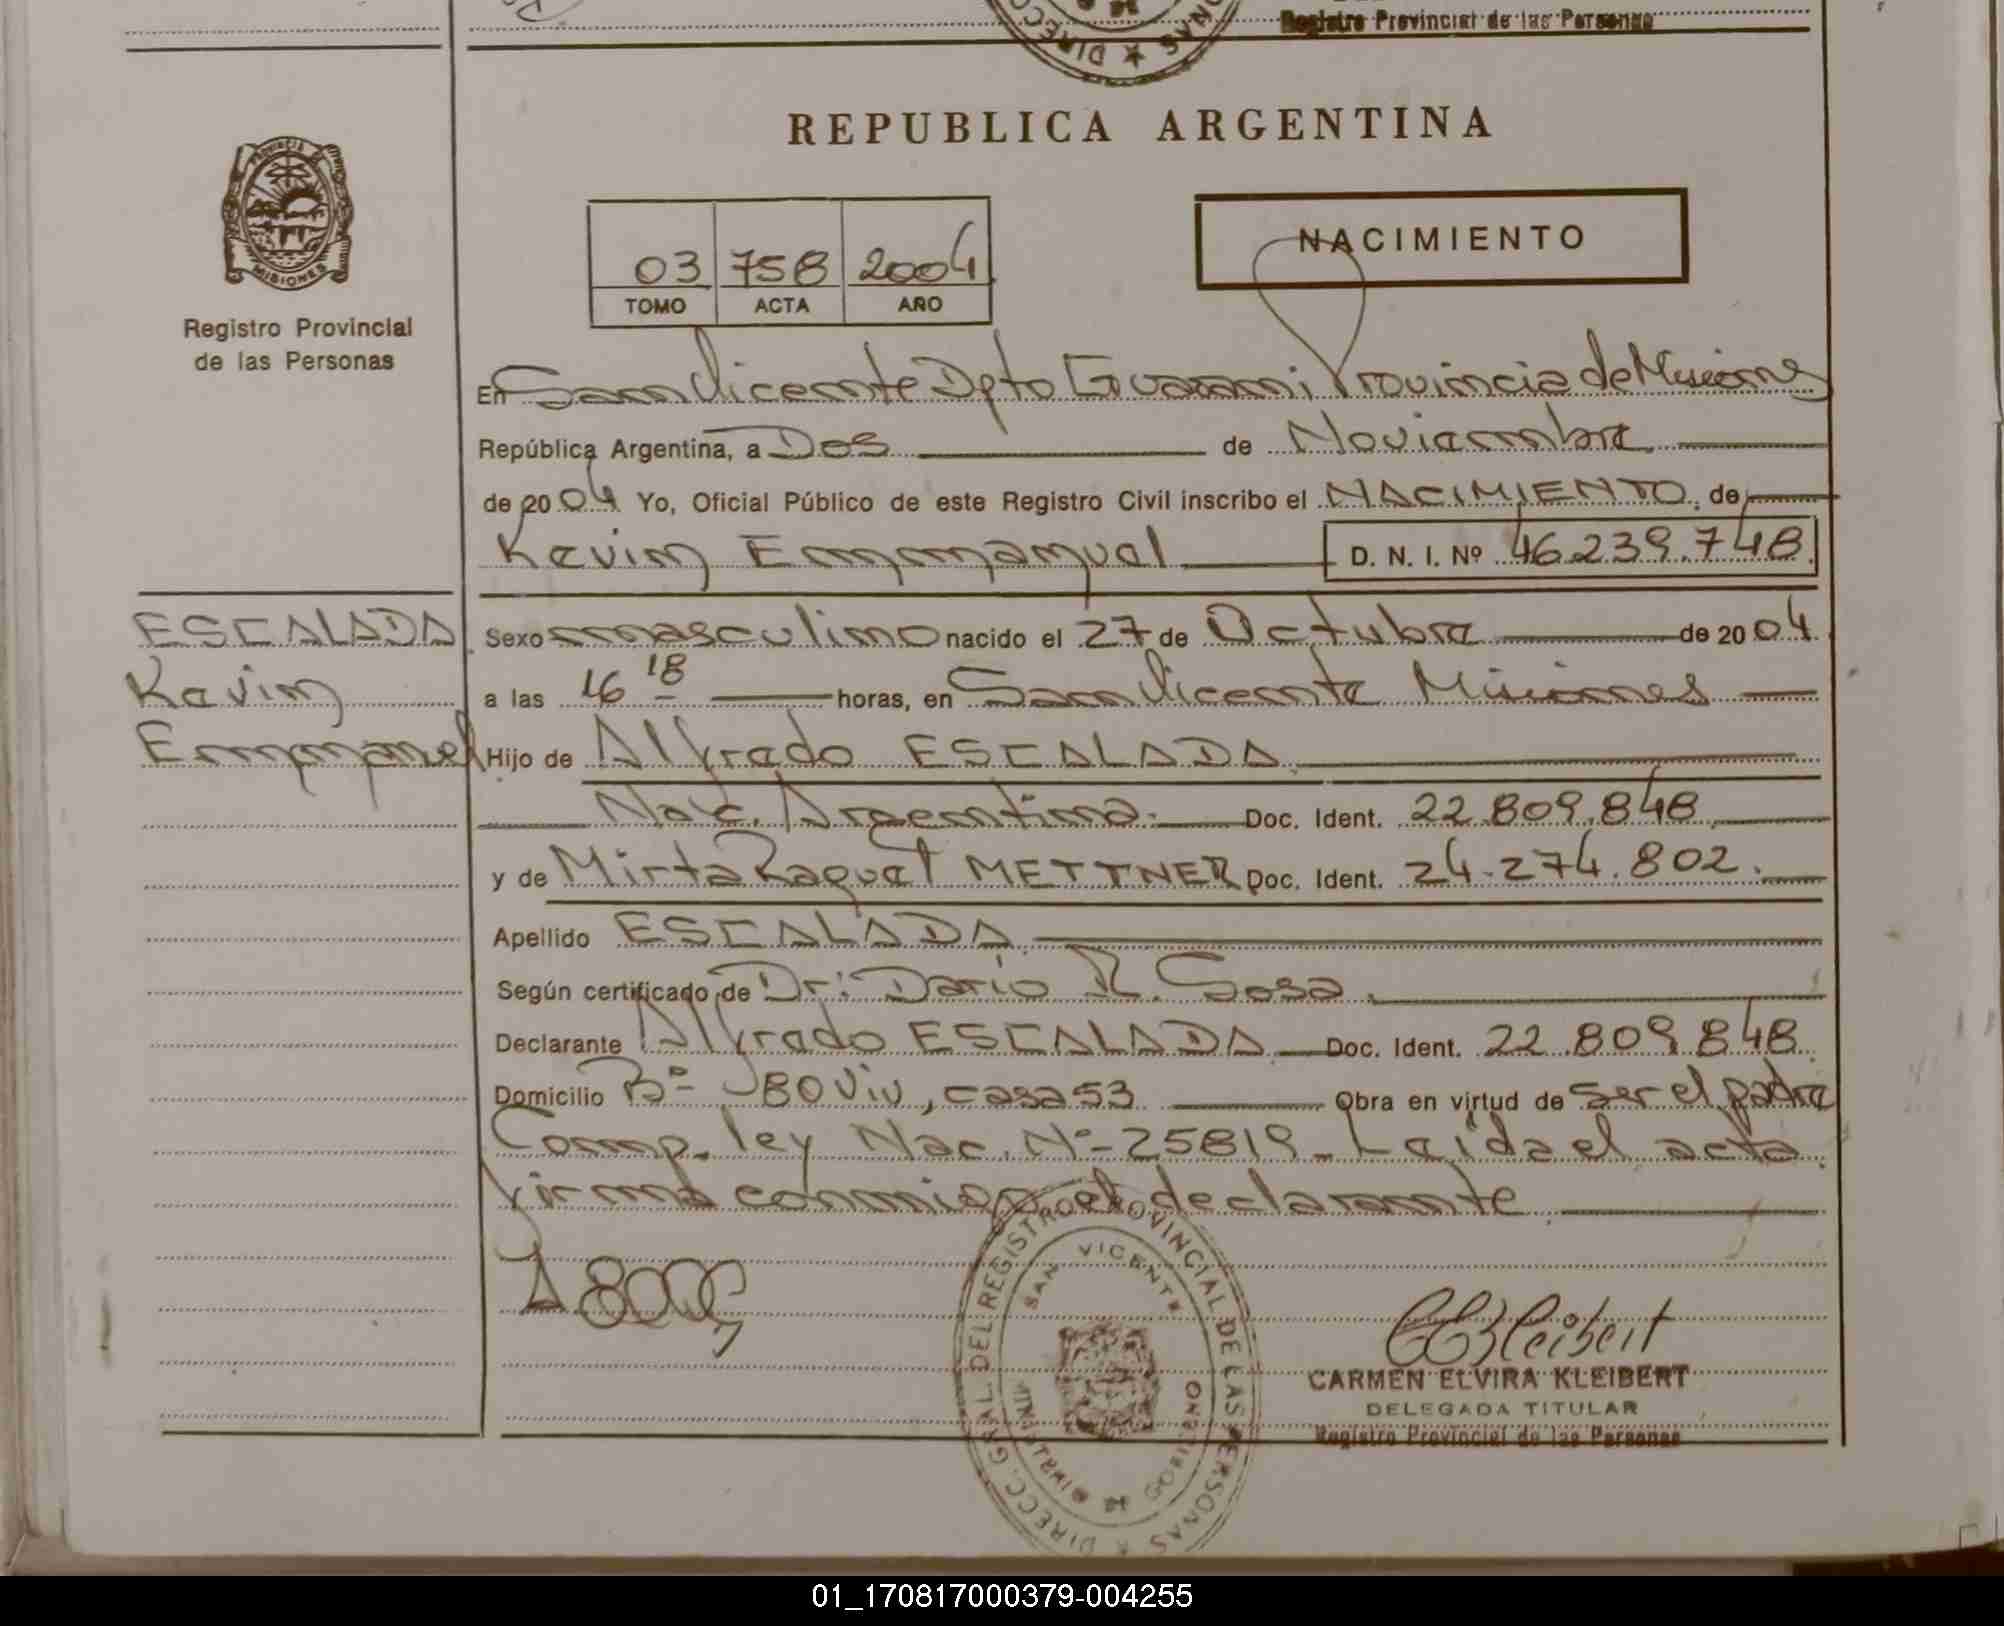 Registro Provincial de las Personas
REPUBLICA ARGENTINA
PROVINCIA DE
MISIONES
Registro Provincial
de las Personas
03 758 2004
TOMO ACTA AÑO
NACIMIENTO
En San Vicente Dpto Guarani Provincia de Misiones
República Argentina, a Dos de Noviembre
de 2004 Yo, Oficial Público de este Registro Civil inscribo el NACIMIENTO de
Kevin Emmanuel D. N. I. Nº 46.239.748
ESCALADA
Kevin
Emmanuel
Sexo masculino nacido el 27 de Octubre de 2004.
a las 16 18 horas, en San Vicente Misiones
Hijo de Alfredo ESCALADA
Nac. Argentina. Doc. Ident. 22.809.848
y de Mirta Raquel METTNER Doc. Ident. 24.274.802.
Apellido ESCALADA
Según certificado de Dr: Dario R. Sosa.
Declarante Alfredo ESCALADA Doc. Ident. 22.809.848
Domicilio Bº casa 53 Obra en virtud de ser el padre
Comp. ley Nac. Nº 25819 - Leida el acta
firma conmigo el declarante
DIRECC. GRAL. DEL REGISTRO PROVINCIAL DE LAS PERSONAS
SAN VICENTE
MINISTERIO DE GOBIERNO
CARMEN ELVIRA KLEIBERT
DELEGADA TITULAR
Registro Provincial de las Personas
01_170817000379-004255